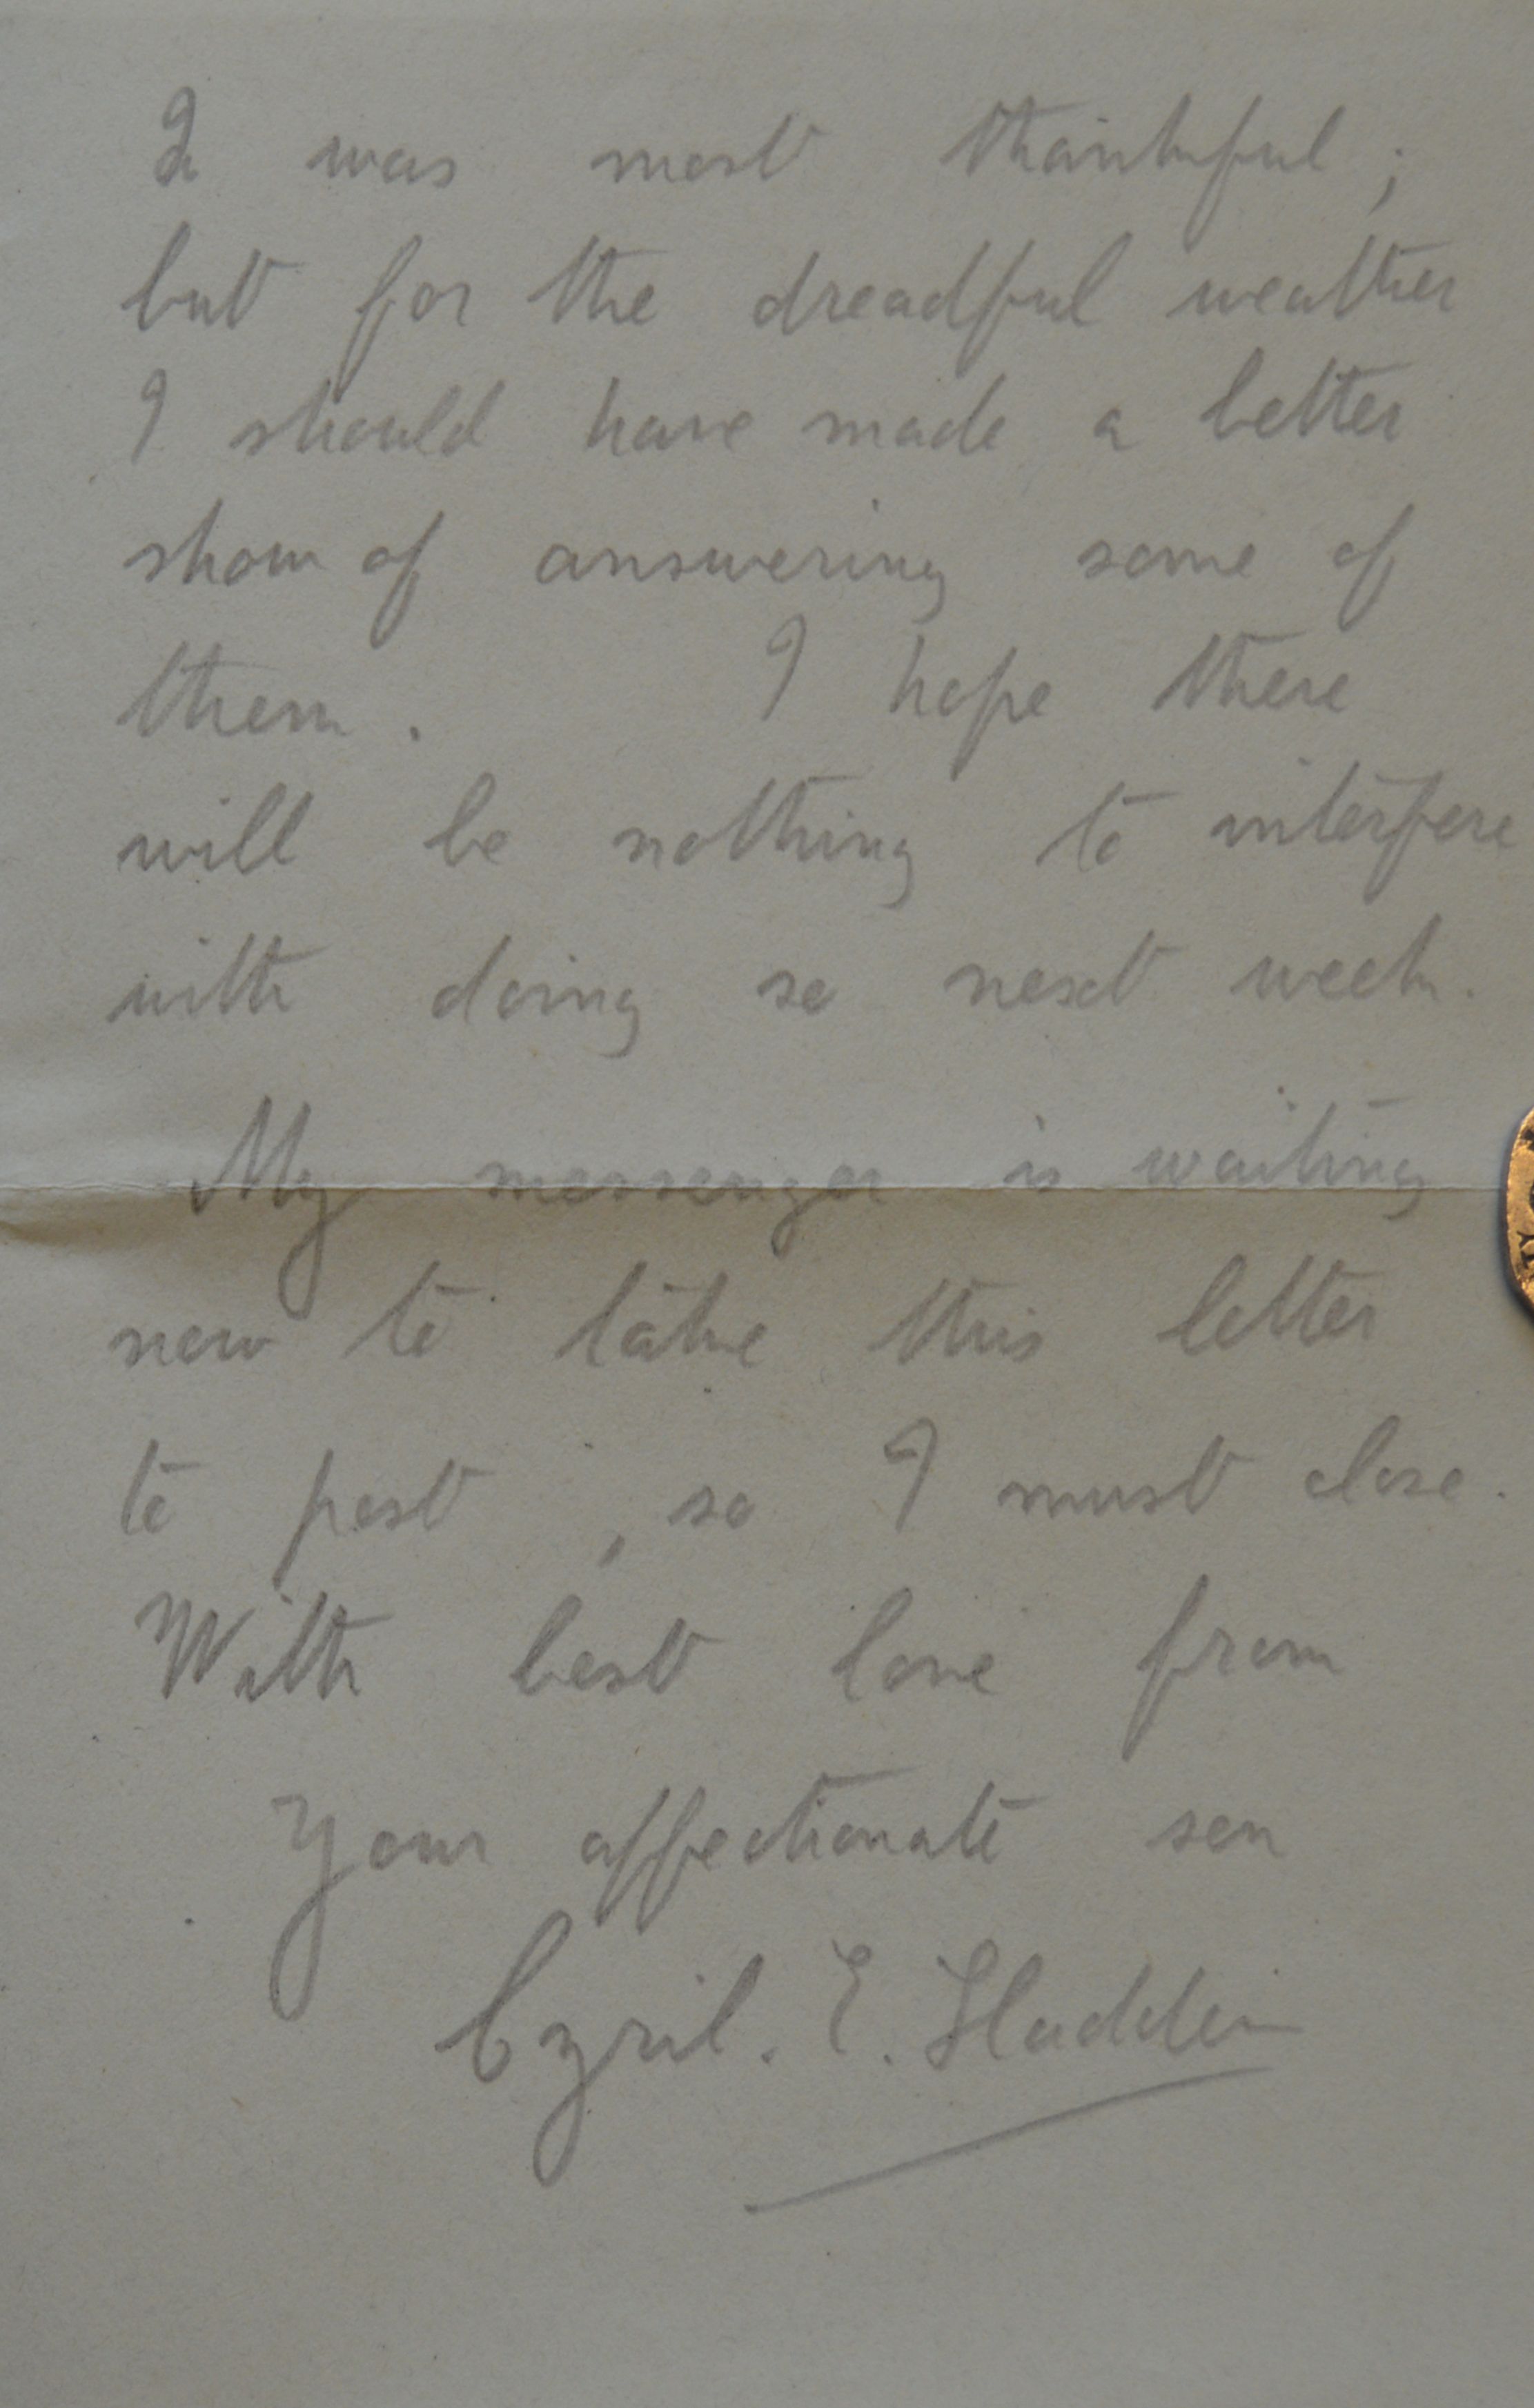 I was most thankful ;
but for the dreadful weather
I should have made a better
show of answering some of
them. I hope there
will be nothing to interfere
with doing so next week.
My messenger is waiting
now to take this letter
to post , so I must close.
With best love from
Your affectionate son
Cyril. E. Sladden